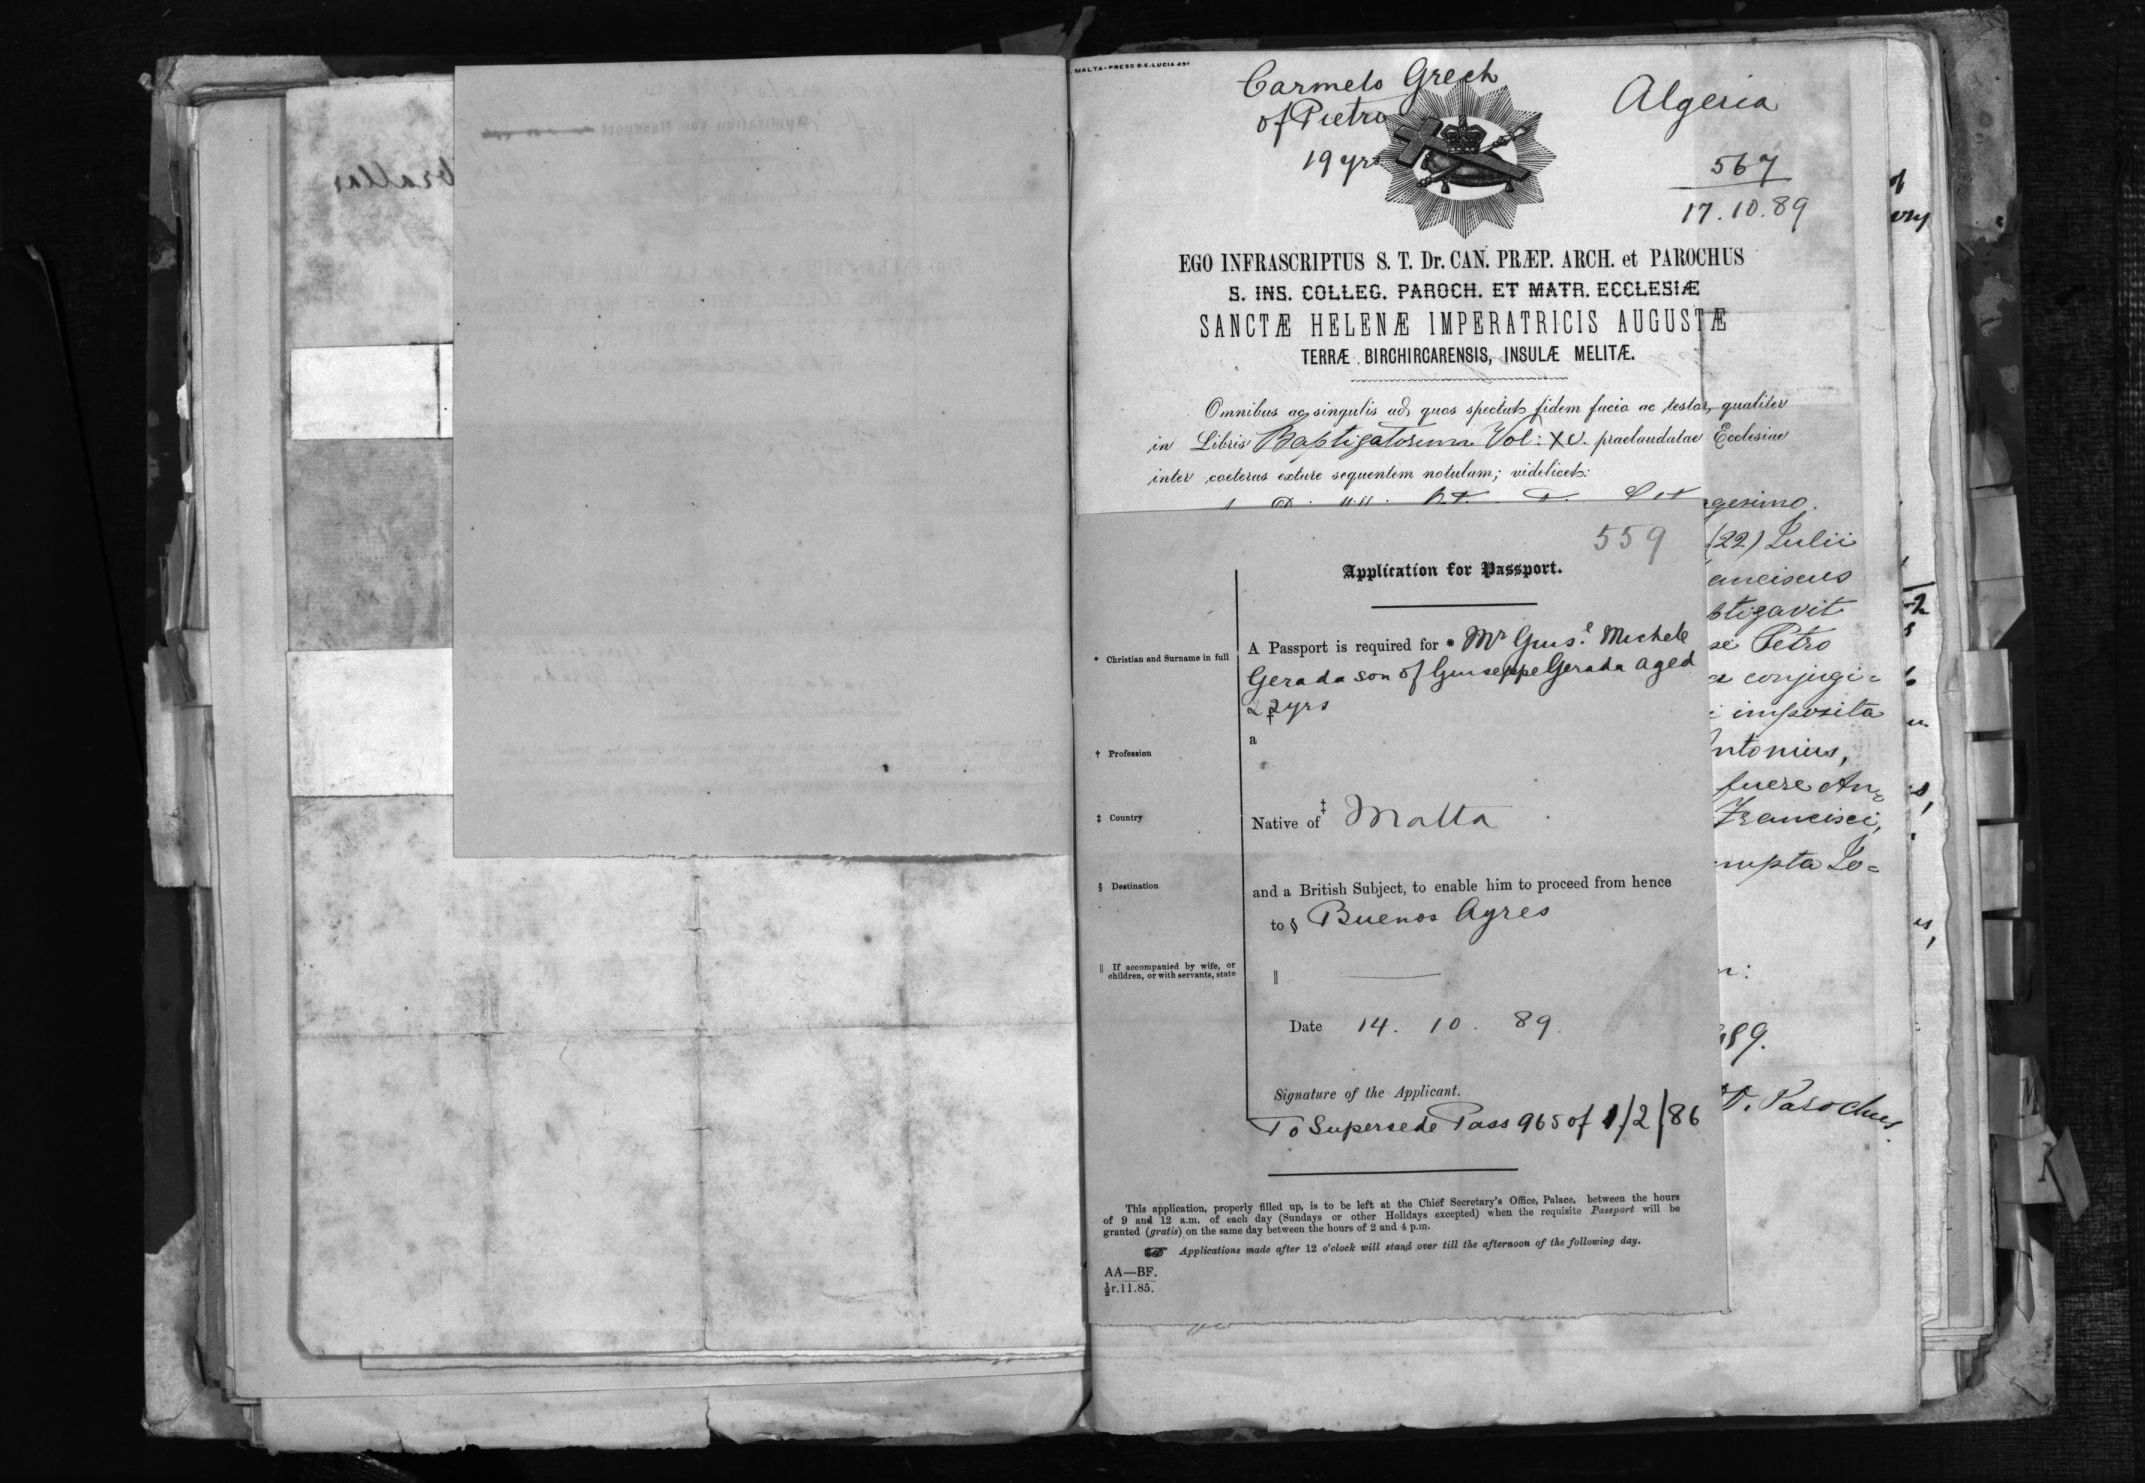 MALTA-PRESS S.S. LUCIA 43
Carmelo Grech
of Pietro
19 yrs
Algeria
567
17.10.89
EGO INFRASCRIPTUS S. T. Dr. CAN. PRÆP. ARCH. et PAROCHUS
S. INS. COLLEG. PAROCH. ET MATR. ECCLESIÆ
SANCTÆ HELENÆ IMPERATRICIS AUGUSTÆ
TERRÆ BIRCHIRCARENSIS, INSULÆ MELITÆ.
Omnibus ac singulis ad quos spectat fidem facio ac testor, qualiter
in Libris Baptizatorum Vol: XV. praelaudatae Ecclesiae
inter coeteras extare sequentem notulam; videlicet:
gesimo.
(22) Lulii
anciscus
ptizavit
se Petro
conjugi=
imposita
ntonius,
fuere An=
Francisci,
mpta Lo=
89.
Parochus.
559
Application for Passport.
* Christian and Surname in full
A Passport is required for * Mr Gius.e Michele
Gerada son of Giuseppe Gerada aged
22 yrs
† Profession
†
a
‡ Country
Native of ‡ Malta
§ Destination
and a British Subject, to enable him to proceed from hence
to § Buenos Ayres
‖ If accompanied by wife, or
children, or with servants, state
‖
Date 14. 10. 89.
Signature of the Applicant.
To Supersede Pass 965 of 1/2/86
This application, properly filled up, is to be left at the Chief Secretary's Office, Palace, between the hours
of 9 and 12 a.m. of each day (Sundays or other Holidays excepted) when the requisite Passport will be
granted (gratis) on the same day between the hours of 2 and 4 p.m.
☞ Applications made after 12 o'clock will stand over till the afternoon of the following day.
AA—BF.
½r.11.85.